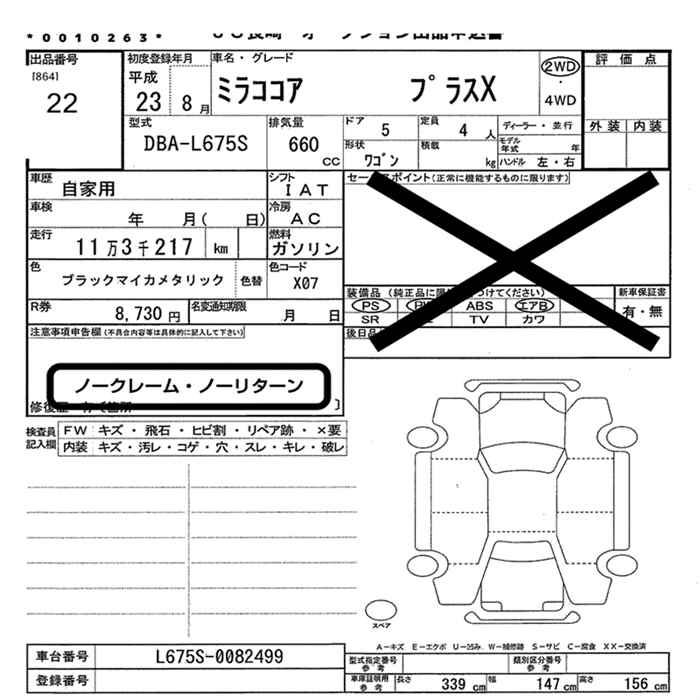 *0010263*
出品番号
[864]
22
初度登録年月
平成
23 8月
車名・グレード
ミラココア プラスX
2WD
・
4WD
評価点
外装 内装
型式
DBA-L675S
排気量
660
CC
ドア
5
定員
4 人
ディーラー・並行
モデル年式 年
形状
ワゴン
積載
kg
ハンドル 左・右
車歴
自家用
シフト
IAT
セールスポイント(正常に機能するものに限ります)
車検
年 月( 日)
冷房
AC
走行
11万3千217 km
燃料
ガソリン
色
ブラックマイカメタリック
色替
色コード
X07
R券
8,730 円
名変通知期限
月 日
装備品(純正品に限 つけてください)
PS ABS エアB
SR TV カワ
新車保証書
有・無
後日品
注意事項申告欄(不具合内容等は具体的に記入して下さい)
ノークレーム・ノーリターン
検査員記入欄
FW キズ・飛石・ヒビ割・リペア跡・×要
内装 キズ・汚レ・コゲ・穴・スレ・キレ・破レ
スペア
A-キズ E-エクボ U-凹み W-補修跡 S-サビ C-腐食 XX-交換済
車台番号 L675S-0082499
登録番号
型式指定番号
参考
類別区分番号
参考
車庫証明用
参考
長さ 339 cm 幅 147 cm 高さ 156 cm